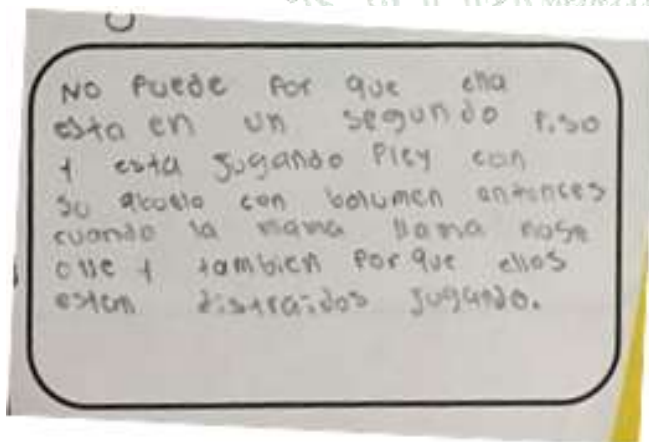 NO Puede Por que ella
esta en un segundo Piso
y esta Jugando Pley con
su abuelo con bolumen antonces
cuando la mama llama nose
olle y tambien Por que ellos
esten distraidos Jugando.